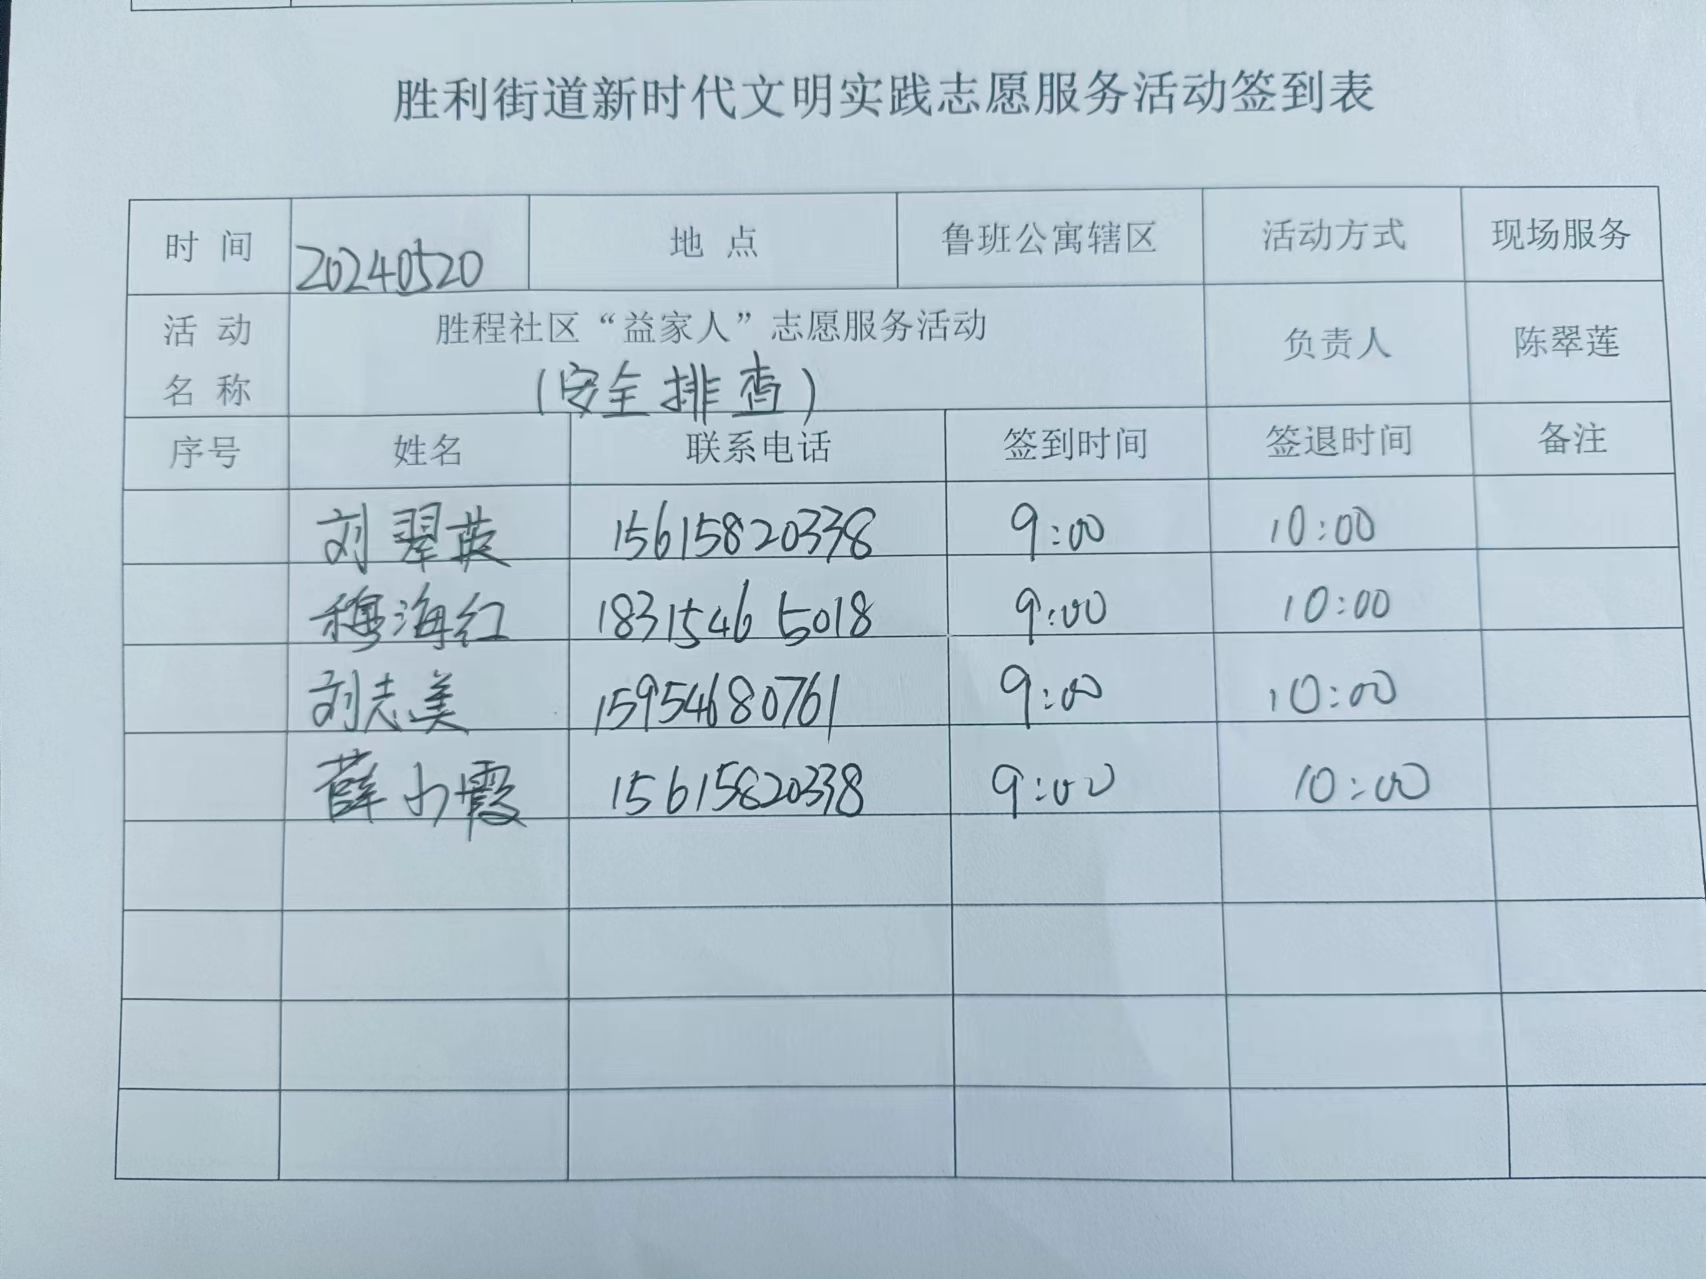 胜利街道新时代文明实践志愿服务活动签到表
时 间 20240520 地 点 鲁班公寓辖区 活动方式 现场服务
活 动 名 称 胜程社区“益家人”志愿服务活动 负责人 陈翠莲
(安全排查)
序号 姓名 联系电话 签到时间 签退时间 备注
刘翠英 15615820338 9:00 10:00
穆海红 18315465018 9:00 10:00
刘志美 15954680761 9:00 10:00
薛小霞 15615820338 9:00 10:00